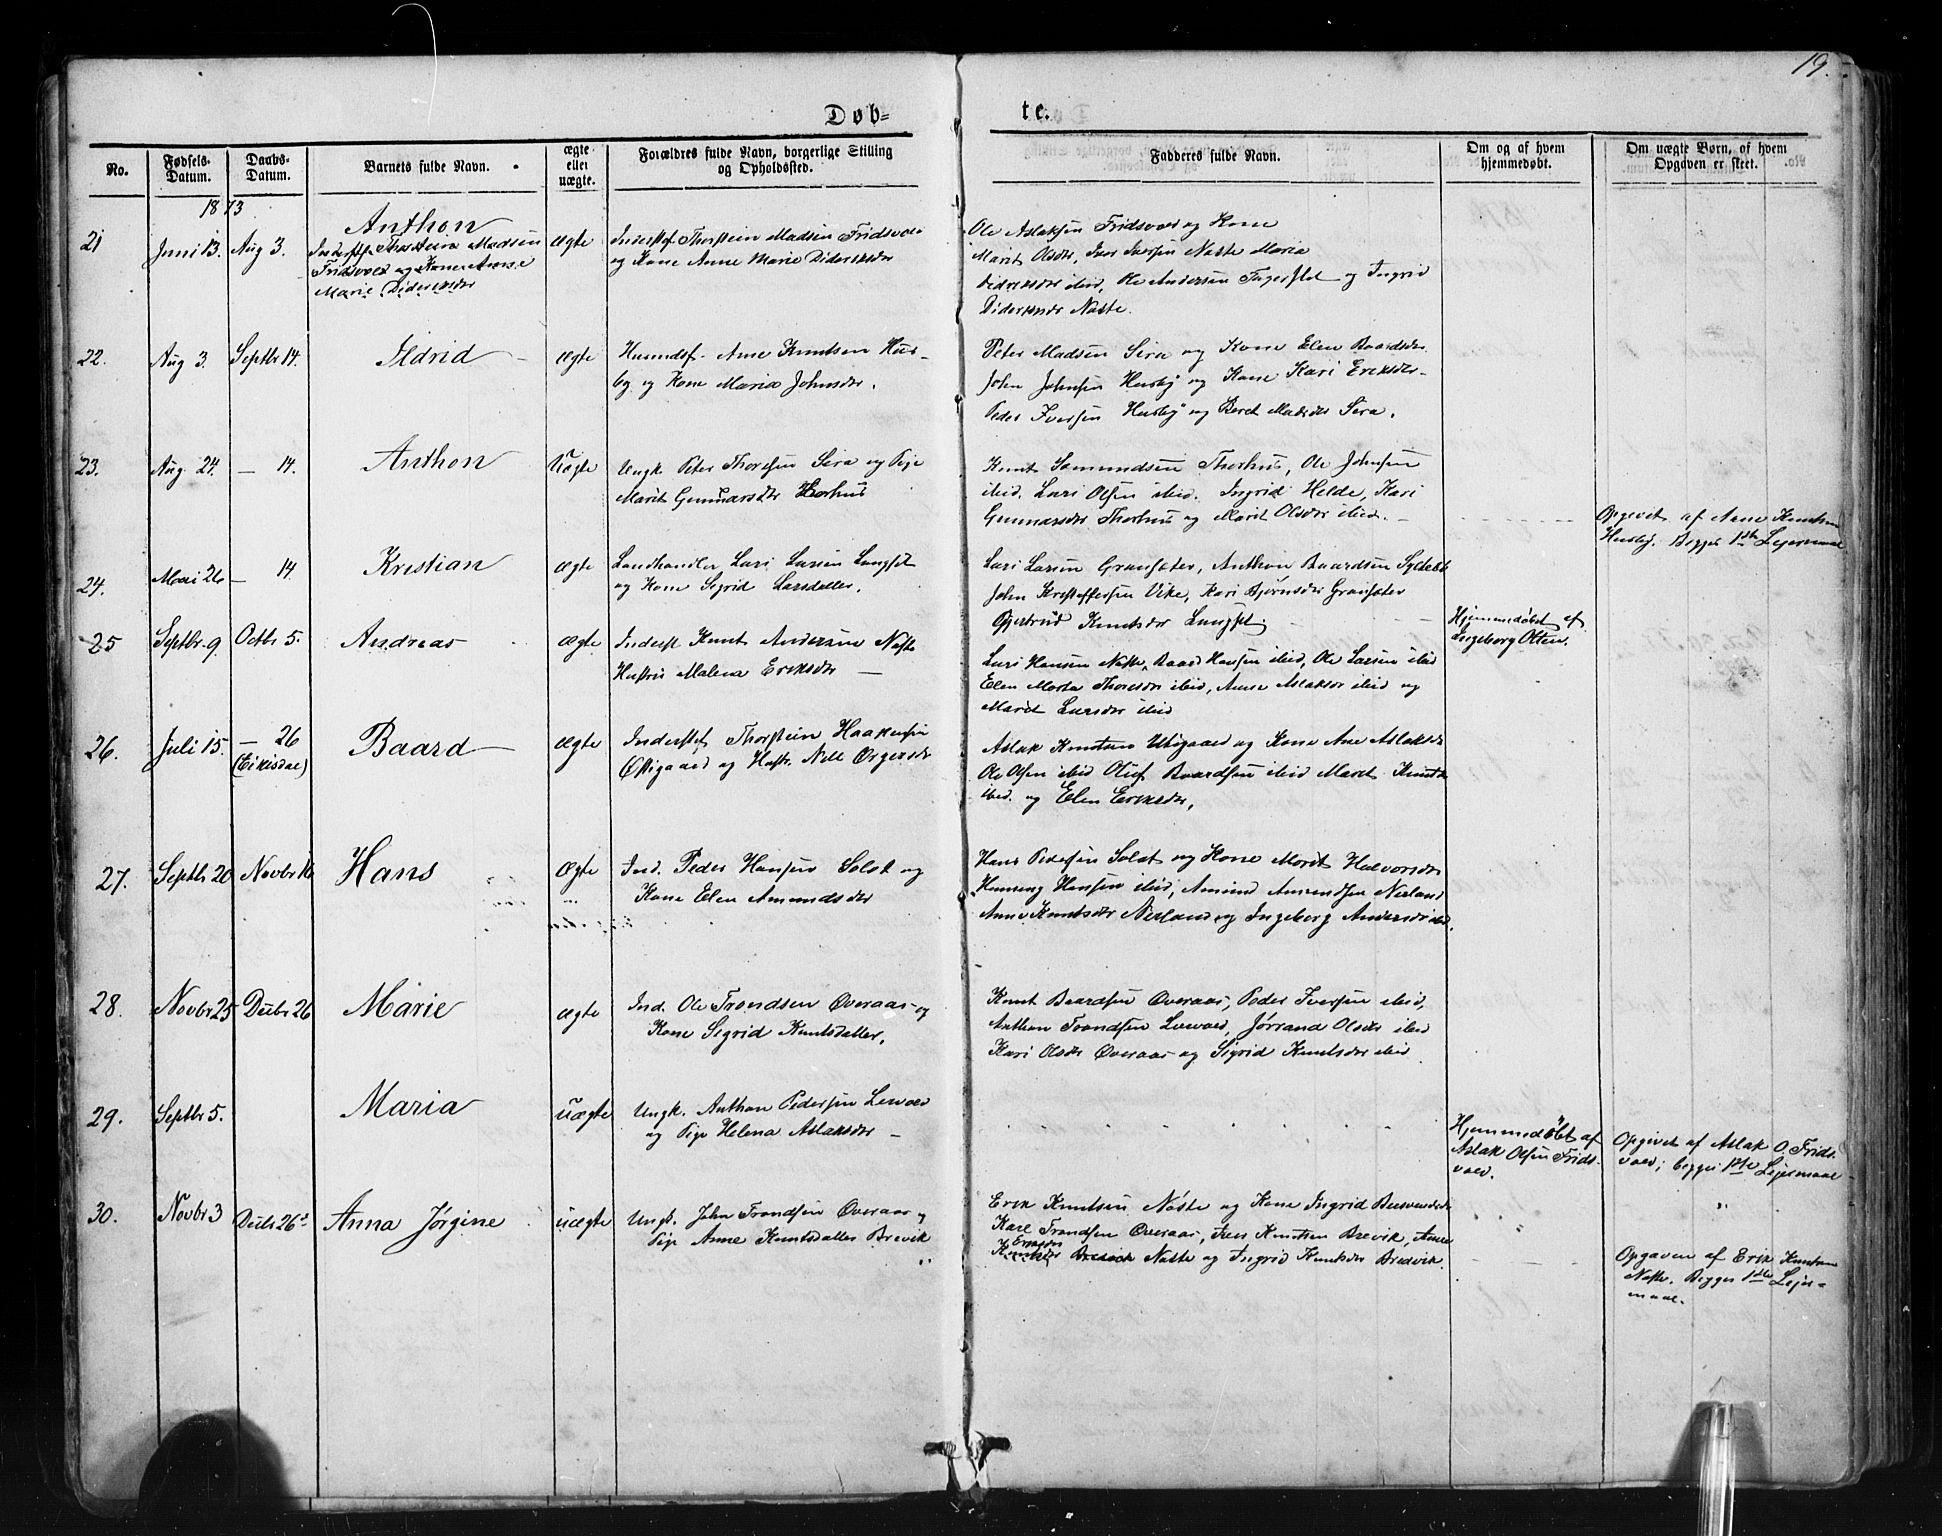 19.
Døb-
te.
No.
Fødsels-
Datum.
Daabs-
Datum.
Barnets fulde Navn.
ægte
eller
uægte.
Forældres fulde Navn, borgerlige Stilling
og Opholdssted.
Fadderes fulde Navn.
Om og af hvem
hjemmedøbt.
Om uægte Børn, af hvem
Opgaven er skeet.
1873
21
Juni 13.
Aug 3.
Anthon
Inderstf. Thorstein Madsen
Fridsvold og Kone Anne
Marie Didriksdtr
ægte
Inderstf. Thorstein Madsen Fridsvold
og Kone Anne Marie Dideriksdtr
Ole Aslaksen Fridsvold og Kone
Marit Olsdtr, Iver Iversen Nøste Maria
Didriksdtr ibid, Ole Andersen Fagerslet og Ingrid
Dideriksdtr Nøste.
22.
Aug 3.
Septbr 14.
Ildrid
ægte
Husmdsf. Arne Knutsen Hus-
by og Kone Maria Johnsdtr.
Peter Madsen Sira og Kone Elen Baardsdtr.
John Johnsen Husby og Kone Kari Eriksdtr-
Peder Iversen Husby og Beret Madsdtr Sira.
23.
Aug 24.
— 14.
Anthon
Uægte
Ungk. Peter Thoresen Sira og Pige
Marit Gunnarsdtr Thorhus
Knut Samundsen Thorhus, Ole Johnsen
ibid. Lars Olsen ibid. Ingrid Helde, Kari
Gunnarsdtr Thorhus og Marit Olsdtr ibid. —
Opgivet af Arne Knutsen
Husby. Begges 1ste Lejermaal
24.
Mai 26
— 14.
Kristian
ægte
Landhandler Lars Larsen Langset
og Kone Sigrid Larsdatter.
Lars Larsen Gransæter, Anthon Baardsen Syltebø
John Kristoffersen Vike, Kari Bjørnsdtr Gransæter
Gjertrud Knutsdtr Langset
25
Septbr 9
Octbr 5.
Andreas
ægte
Inderst Knut Andersen Nøste
Hustru Malena Eriksdtr —
Lars Hansen Nøste, Baard Hansen ibid, Ole Larsen ibid
Elen Marta Thoresdtr ibid, Anne Aslaksdtr ibid og
Marit Larsdtr ibid
Hjemmedøbt af
Ingeborg Otten.
26.
Juli 15.
— 26
(Eikisdal)
Baard
ægte
Inderstet Thorstein Haakensen
Øfsigaard og Hustr. Nille Ørgersdtr
Aslak Knutsen Utigaard og Kone Ane Aslaksdtr
Ole Olsen ibid Oluf Baardsen ibid Marit Knutsdtr
ibid. og Elen Eriksdtr,
27.
Septbr 20
Novbr 16
Hans
Ægte
Ind. Peder Hansen Solst og
Kone Elen Amundsdtr
Hans Pedersen Solst og Kone Marit Halvorsdtr
Henning Hansen ibid, Amund Amundsen Nerland
Anne Knutsdtr Nerland og Ingeborg Andersdtr ibid.
28.
Novbr 25
Decbr 26
Marie
ægte
Ind. Ole Trondsen Øveraas og
Kone Sigrid Knutsdatter.
Knut Baardsen Øveraas, Peder Iversen ibid,
Anthon Trondsen Lervold, Jørrand Olsdtr ibid
Kari Olsdtr Øveraas og Sigrid Knutsdtr ibid
29.
Septbr 5.
Maria
uægte
Ungk. Anthon Pedersen Lervold
og Pige Helena Aslaksdtr —
Hjemmedøbt af
Aslak Olsen Frids-
vold.
Opgivet af Aslak O. Frids-
vold; begges 1ste Lejermaal
30.
Novbr 3
Decbr 26d
Anna Jørgine
uægte
Ungk. John Trondsen Øveraas og
Pige Anne Knutsdatter Brevik
Erik Knutsen Nøste og Kone Ingrid
Kari Trondsen Øveraas, Iver Knutsen Brevik, Anne
Eriksdtr
Knutsdtr Bredvik Nøste og Ingrid Knutsdtr Bredvik.
Opgaven af Erik Knutsen
Nøste. Begges 1ste Lejer-
maal.